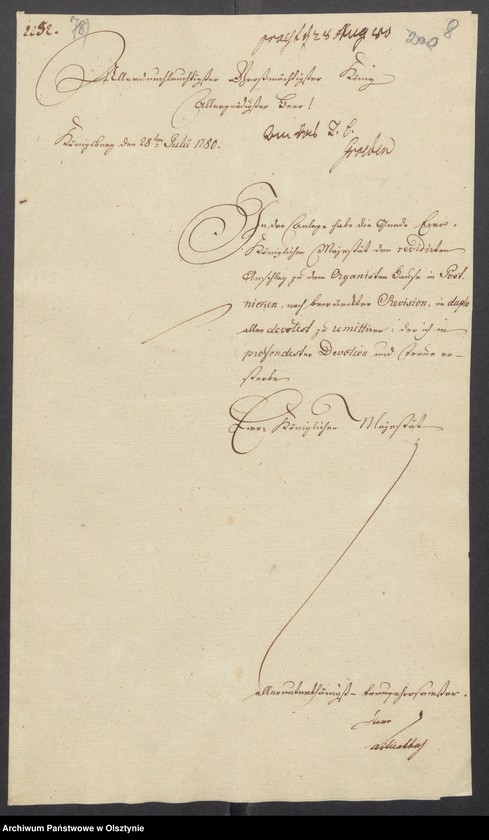 2252. 78)
praes. d 28 Aug 80
8
Allerdurchlauchtigster Großmächtigster König
Allergnädigster Herr!
Königsberg den 28ten Julii 1780.
Groeben
In der Anlage habe die Gnade Ewr.
Königlichen Majestät den revidirten
Anschlag zu dem Organisten Hause in Post-
nicken, nach bewürckter Revision, in duplo
aller devotest zu remittiren; der ich in
profondester Devotion und Treue er-
sterbe
Ewr. Königlichen Majestät
allerunterthänigst-treugehorsamster
Archiwum Państwowe w Olsztynie